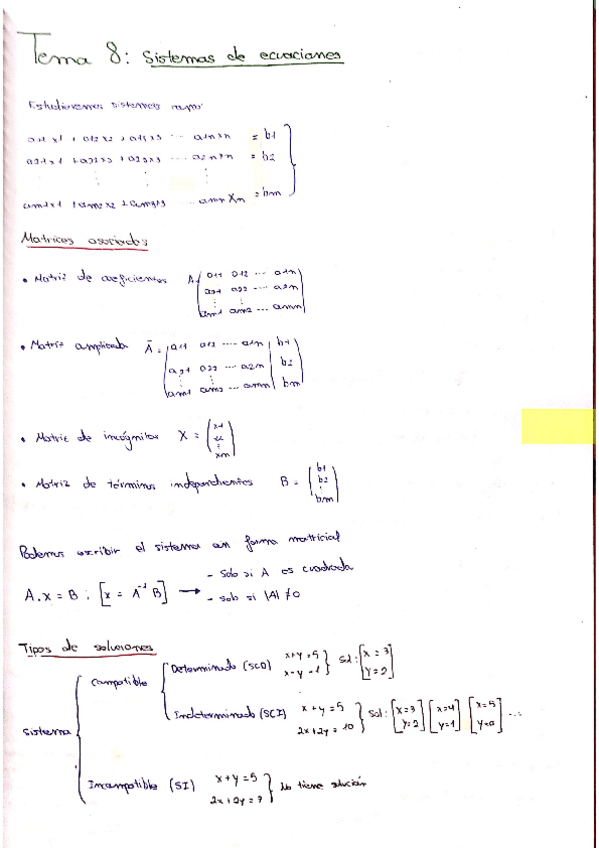 Tema 8: Sistemas de ecuaciones
Estudiaremos sistemas
a11x1 + a12x2 + a13x3 ... a1nxn = b1
a21x1 + a22x2 + a23x3 ... a2nxn = b2
⋮ ⋮ ⋮ ⋮
am1x1 + am2x2 + am3x3 ... amn Xn = bm
Matrices asociadas
• Matriz de coeficientes A = ( a11 a12 ... a1n
a21 a22 ... a2n
⋮ ⋮
am1 am2 ... amn )
• Matriz ampliada Ā = ( a11 a12 .... a1n | b1
a21 a22 ... a2n | b2
⋮ ⋮
am1 am2 ... amn | bm )
• Matriz de incógnitas X = ( x1
x2
⋮
xm )
• Matriz de términos independientes B = ( b1
b2
⋮
bm )
Podemos escribir el sistema en forma matricial
A.x = B : [x = A⁻¹ B] → - Solo si A es cuadrada
- solo si |A| ≠ 0
Tipos de soluciones
Sistema
Compatible
Determinado (SCD) x+y=5 Sol: [x=3
x-y=1 y=2]
Indeterminado (SCI) x+y=5 Sol: [x=3 [x=4 [x=5
2x+2y=10 y=2] y=1] y=0] ...
Incompatible (SI) x+y=5 No tiene solución
2x+2y=7